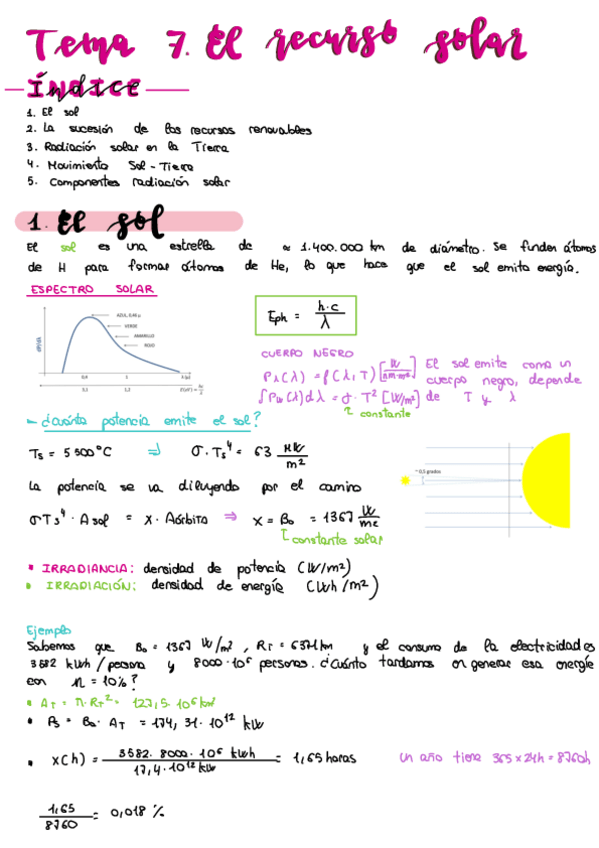 Tema 7. El recurso solar
ÍNDICE
1. El sol
2. La sucesión de los recursos renovables
3. Radiación solar en la Tierra
4. Movimiento Sol - Tierra
5. Componentes radiación solar
1. El sol
El sol es una estrella de ≈ 1.400.000 km de diámetro. Se funden átomos
de H para formar átomos de He, lo que hace que el sol emita energía.
ESPECTRO SOLAR
AZUL, 0,46 μ
VERDE
AMARILLO
ROJO
Eph = h·c / λ
CUERPO NEGRO
Pλ(λ) = f(λ,T) El sol emite como un
cuerpo negro, depende
de T y λ
τ constante
- ¿cuánta potencia emite el sol?
Ts = 5500°C ⇒ σ·Ts⁴ = 63 MW/m²
~ 0,5 grados
La potencia se va diluyendo por el camino
σTs⁴ · Asol = x · Aórbita ⇒ x = B₀ = 1367
constante solar
• IRRADIANCIA: densidad de potencia (W/m²)
• IRRADIACIÓN: densidad de energía (Wh/m²)
Ejemplo
Sabemos que B₀ = 1367 W/m², RT = 6371km y el consumo de la electricidad es
3582 kWh/persona y 8000·10⁶ personas. ¿cuánto tardamos en generar esa energía
con n = 10%?
• AT = π·RT² = 127,5·10⁶km²
• Ps = B₀·AT = 174,31·10¹² kW
• x(h) = 3582·8000·10⁶ kWh / 17,4·10¹² kW = 1,65 horas un año tiene 365x24h = 8760h
1,65 / 8760 = 0,018 %